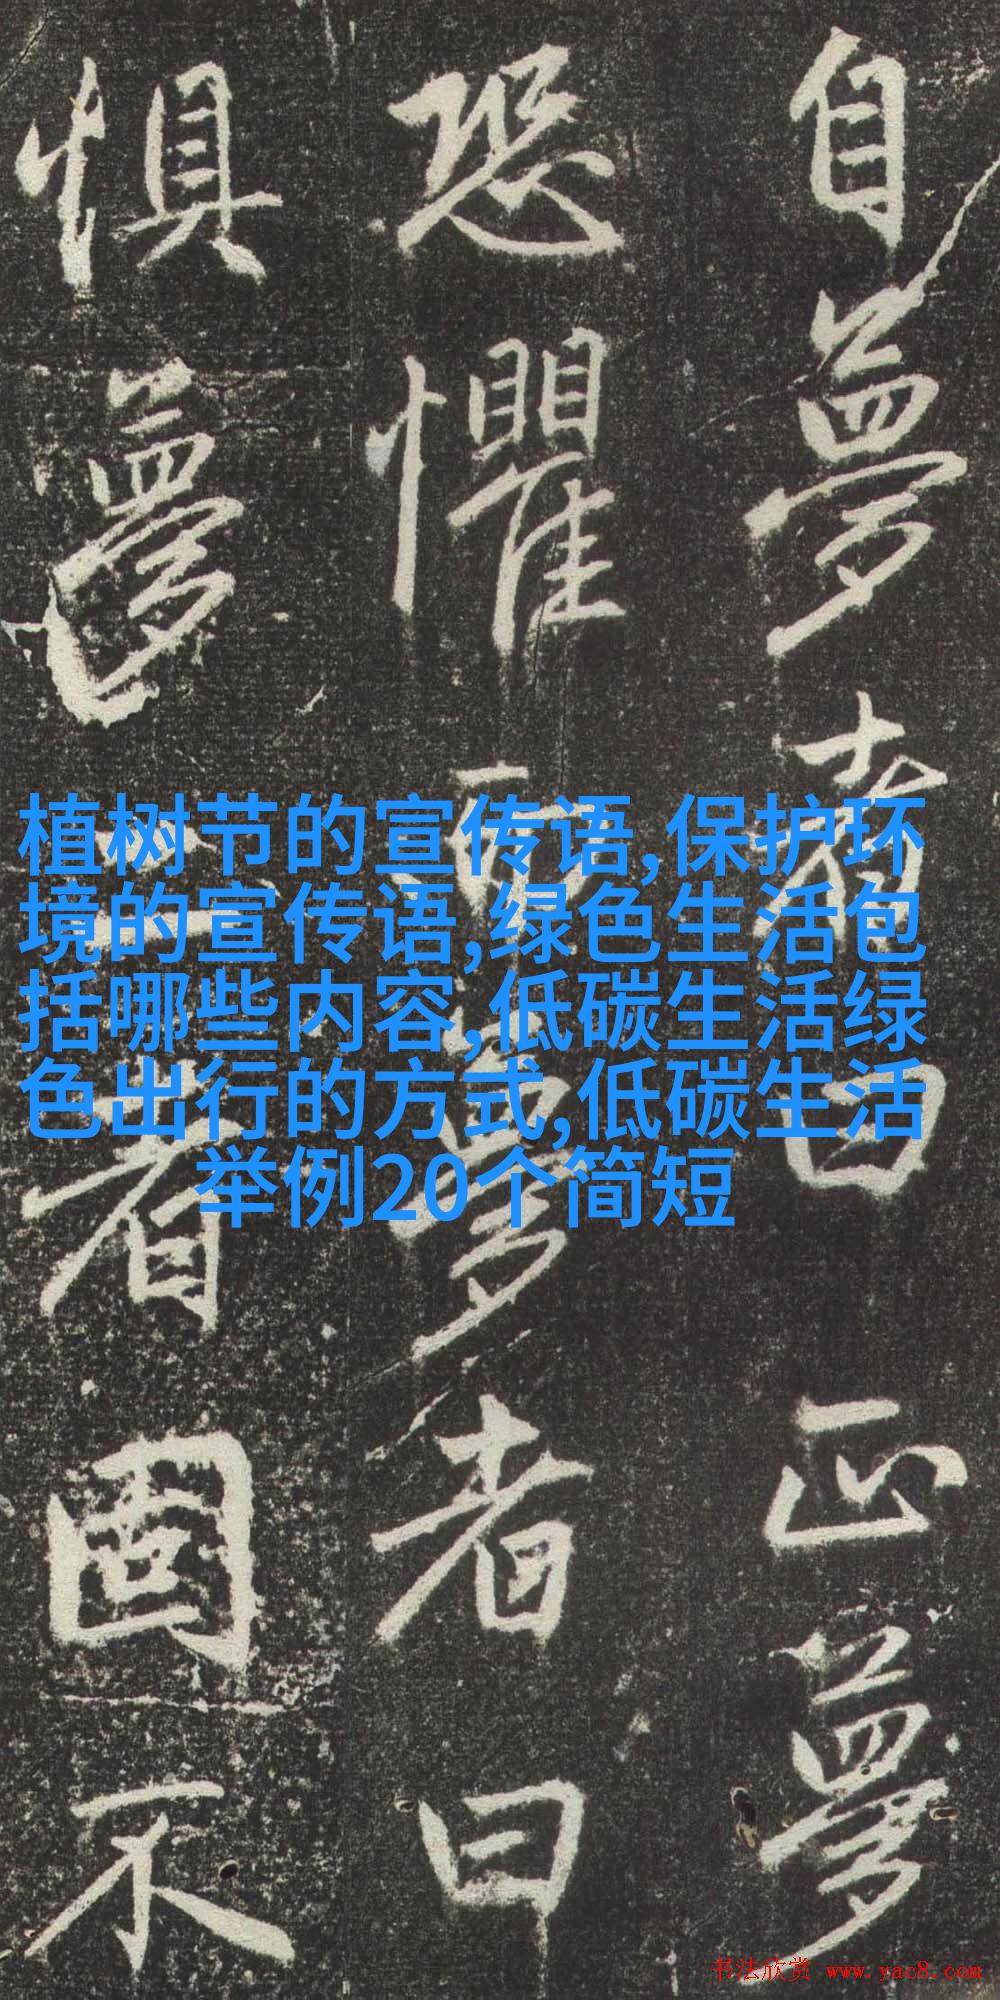 自夢者曰正夢
恐懼而夢者曰
惧夢二者固不
植树节的宣传语,保护环
境的宣传语,绿色生活包
括哪些内容,低碳生活绿
色出行的方式,低碳生活
举例20个简短
书法欣赏 www.yac8.com